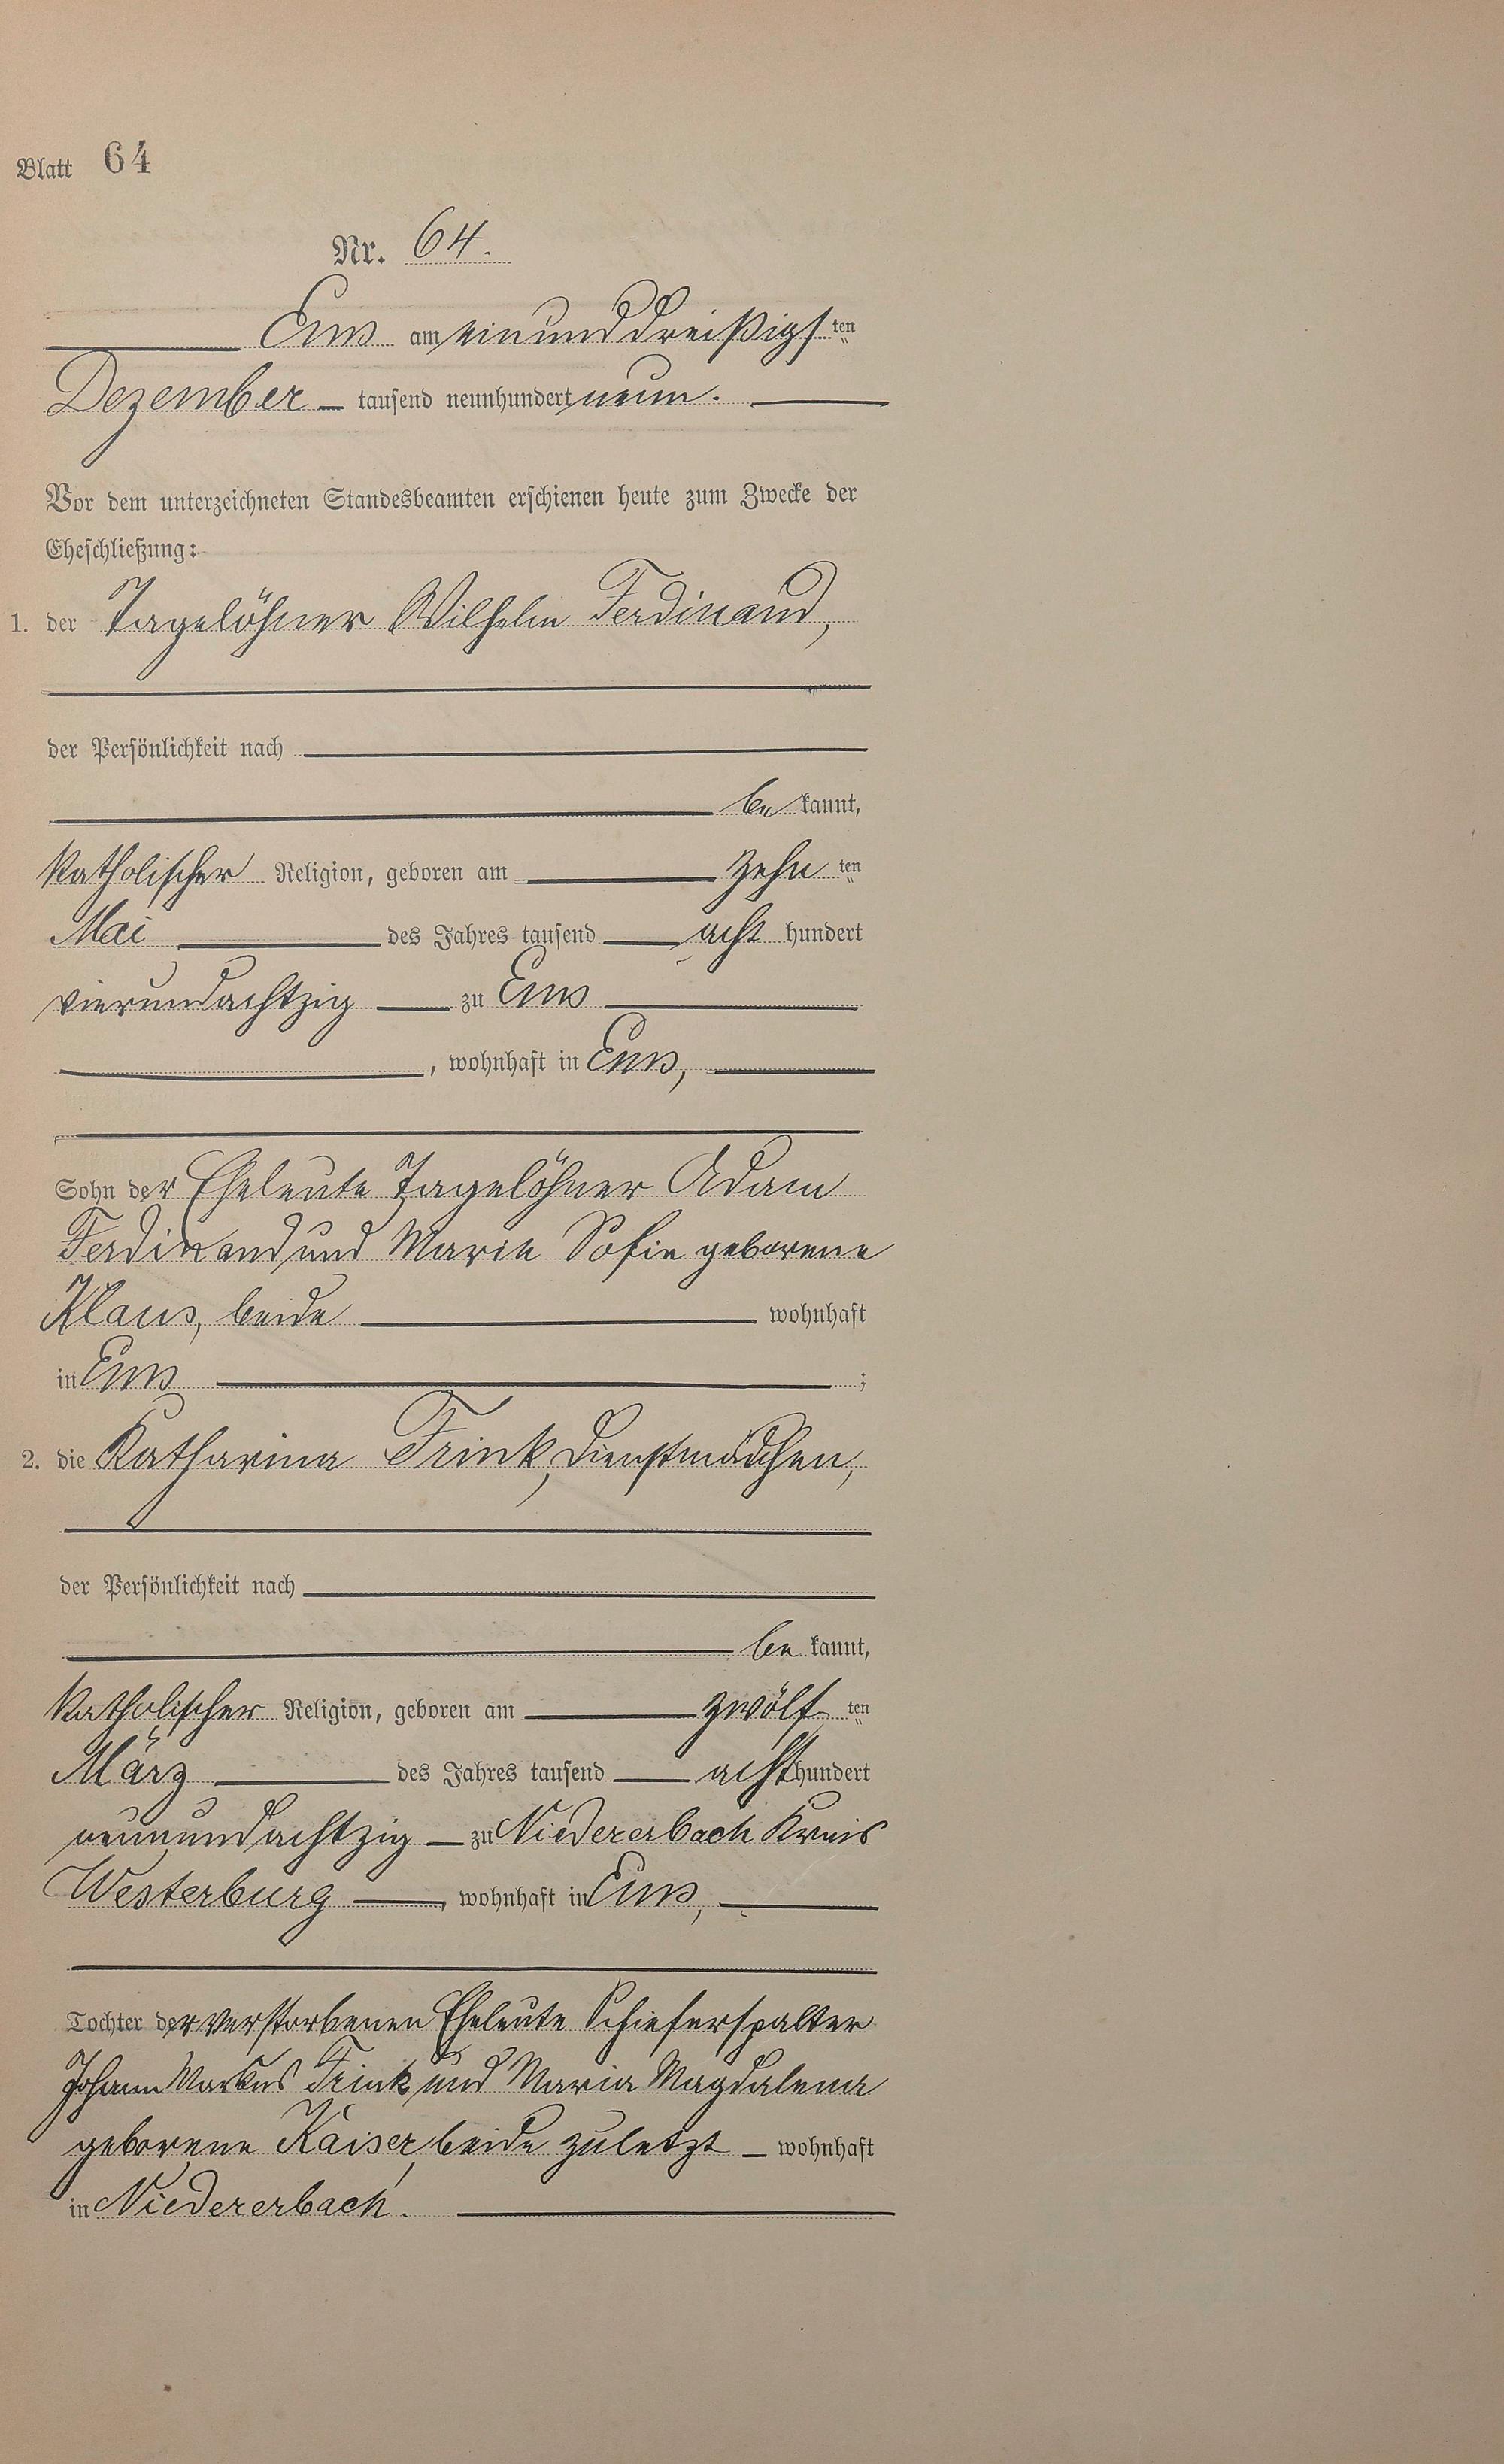 Blatt 64
Nr. 64.
Ems am einunddreißigsten
Dezember tausend neunhundert neun.
Vor dem unterzeichneten Standesbeamten erschienen heute zum Zwecke der
Eheschließung:
1. der Tagelöhner Wilhelm Ferdinand,
der Persönlichkeit nach
be kannt,
katholischer Religion, geboren am zehn ten
Mai des Jahres tausend acht hundert
vierundachtzig zu Ems
, wohnhaft in Ems,
Sohn der Eheleute Tagelöhner Adam
Ferdinand und Marie Sofie geborene
Klaus, beide wohnhaft
in Ems ;
2. die Katharina Frink, Dienstmädchen,
der Persönlichkeit nach
be kannt,
katholischer Religion, geboren am zwölf ten
März des Jahres tausend acht hundert
neunundachtzig zu Niedererbach Kreis
Westerburg, wohnhaft in Ems,
Tochter der verstorbenen Eheleute Schieferspalter
Johann Markus Frink und Maria Magdalena
geborene Kaiser, beide zuletzt wohnhaft
in Niedererbach.